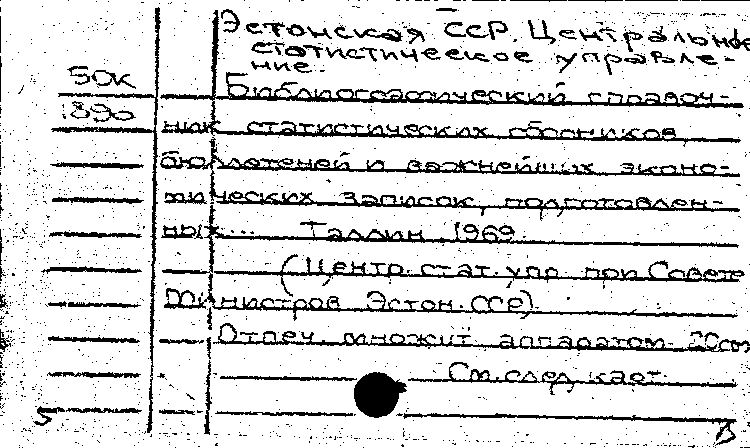 Эстонская ССР. Центральное
статистическое управле-
ние.
БОК
Библиографический справоч-
1890
ник статистических сборников,
бюллетеней и важнейших эконо-
мических записок, подготовлен-
ных... Таллин, 1969.
(Центр. стат. упр. при Совете
Министров Эстон. ССР).
Отпеч. множит. аппаратом. 20см
См. след. карт.